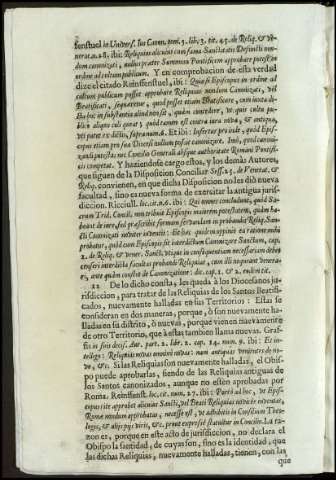 fenstuel in Univers. Ius Canon. tom. 3. lib. 3. tit. 45. de Reliq. & Ve-
nerat. n. 28. ibi: Reliquias dicimus cum fama Sanctitatis Defuncti non-
dum canonizati, nullus præter Summum Pontificem approbare potest in
ordine ad cultum publicum. Y en comprobacion de esta verdad
dize el citado Reinfenstuel, ibi: Quia si Episcopus in ordine ad
cultum publicum posset approbare Reliquias nondum Canonizati, vel
Beatificati, sequeretur, quod posset etiam Beatificare, cum
hoc in substantia aliud non sit, quàm concedere, ut quis cultu pu-
blico aliquo coli possit, quod tamen est contra iura nova, & antiqua,
ut patet ex dictis, supra num. 6. Et ibi: Infertur pro inde, quod Epis-
copus etiam pro sua Diœcesi nullum possit canonizare. Imò, quod canoni-
zandi potestas nec Concilio Generali absque authoritate Romani Ponti-
ficis competat. Y haziendose cargo estos, y los demàs Autores,
que siguen de la Disposicion Conciliar Sess. 25. de Venerat. &
Reliq. convienen, en que dicha Disposicion no les diò nueva
facultad, sino es nueva forma de exercitar la antigua juris-
diccion. Ricciull. loc. cit. n. 6. ibi: Qui omnes concludunt, quod Sa-
crum Trid. Concil. non tribuit Episcopis maiorem potestatem, quàm ha-
beant de iure, sed præscribit formam servandam in probandis Reliq. San-
cti Canonizati noviter inventis: Et hoc quidem
probatur, quod cum Episcopis sit interdictum Canonizare Sanctum, cap.
2. de Reliq. & vener. Sanct. utique in consequentiam necessariam debet
censeri interdicta facultas probandi Reliquias, cum illi nequeant venera-
ri, nisi quàm constet de Canonizatione: dic. cap. 1. & 2. eodem tit.
22 De lo dicho consta, les queda à los Diocesanos ju-
risdiccion, para tratar de las Reliquias de los Santos Beatifi-
cados, nuevamente halladas en su Territorio: Estas se
consideran en dos maneras, porque, ò son nuevamente ha-
lladas en su distrito, ò nuevas, porque vienen nuevamente
de otro Territorio, que à estas tambien llama nuevas. Graf-
fis in suis decis. Aur. part. 2. libr. 2. cap. 14. num. 9. ibi: Et in-
tellego: Reliquiis novas omnino novas: nam antiquas venerare de no-
vo, &c. Si las Reliquias son nuevamente halladas, el Obis-
po puede aprobarlas, siendo de las Reliquias antiguas de
los Santos canonizados, aunque no estèn aprobadas por
Roma. Reinfenst. loc. cit. num. 27. ibi: Partii ad hoc, ut Epis-
copus ritè approbet alicuius Sancti, vel Beati Reliquias noviter inventas,
Romæ nondum approbatas, necesse est, ut adhibeat in Consilium Theo-
logos, & alios pios viros, &c. prout expressè statuitur in Concilio. La ra-
zon es, porque en este acto de jurisdiccion, no declara el
Obispo la santidad, de cuyas son, sino es la identidad, que
las dichas Reliquias, nuevamente halladas, tienen, con las
que